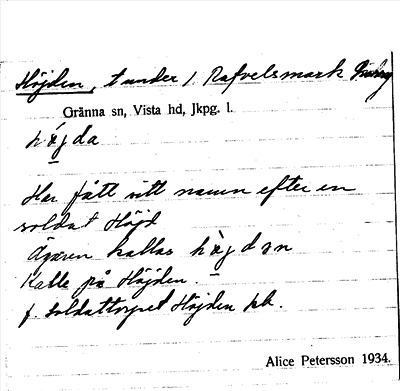 Höjden, t under 1 Rafvelsmark
Gränna sn, Vista hd, Jkpg. l.
häjda
Har fått sitt namn efter en
soldat Höjd
Ägaren kallas häjdən
Kalle på Höjden.
f. soldattorpet Höjden
Alice Petersson 1934.